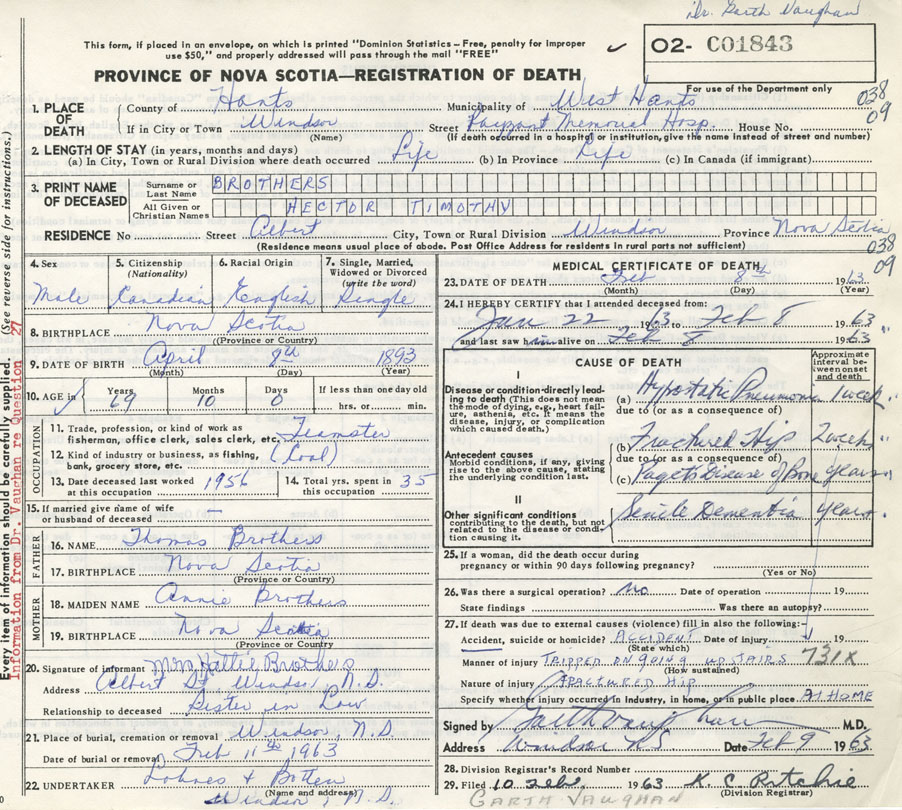 Dr. Garth Vaughan
This form, if placed in an envelope, on which is printed "Dominion Statistics – Free, penalty for improper
use $50," and properly addressed will pass through the mail "FREE"
O2- C01843
For use of the Department only
PROVINCE OF NOVA SCOTIA—REGISTRATION OF DEATH
038
09
1. PLACE OF DEATH
County of Hants Municipality of West Hants
If in City or Town Windsor (Name) Street Payzant Memorial Hosp. House No.
(If death occurred in a hospital or institution, give the name instead of street and number)
2. LENGTH OF STAY (in years, months and days)
(a) In City, Town or Rural Division where death occurred Life (b) In Province Life (c) In Canada (if immigrant)
3. PRINT NAME OF DECEASED
Surname or Last Name BROTHERS
All Given or Christian Names HECTOR TIMOTHY
RESIDENCE No Street Albert City, Town or Rural Division Windsor Province Nova Scotia
(Residence means usual place of abode. Post Office Address for residents in rural parts not sufficient)
038
09
4. Sex Male
5. Citizenship (Nationality) Canadian
6. Racial Origin English
7. Single, Married, Widowed or Divorced (write the word) Single
8. BIRTHPLACE Nova Scotia
(Province or Country)
9. DATE OF BIRTH April 8th 1893
(Month) (Day) (Year)
10. AGE in Years 69 Months 10 Days 0 If less than one day old hrs. or min.
OCCUPATION
11. Trade, profession, or kind of work as fisherman, office clerk, sales clerk, etc. Teamster
12. Kind of industry or business, as fishing, bank, grocery store, etc. (Coal)
13. Date deceased last worked at this occupation 1956
14. Total yrs. spent in this occupation 35
15. If married give name of wife or husband of deceased —
FATHER
16. NAME Thomas Brothers
17. BIRTHPLACE Nova Scotia
(Province or Country)
MOTHER
18. MAIDEN NAME Annie Brothers
19. BIRTHPLACE Nova Scotia
(Province or Country)
20. Signature of informant Mrs Hattie Brothers
Address Albert St. Windsor, N.S.
Relationship to deceased Sister in Law
21. Place of burial, cremation or removal Windsor, N.S.
Date of burial or removal Feb 11th 1963
22. UNDERTAKER
(Name and address)
Windsor, N.S.
MEDICAL CERTIFICATE OF DEATH
23. DATE OF DEATH Feb 8th 1963
(Month) (Day) (Year)
24. I HEREBY CERTIFY that I attended deceased from:
Jan 22 1963 to Feb 8 1963
and last saw him alive on Feb 8 1963
CAUSE OF DEATH
Approximate interval between onset and death
I
Disease or condition directly leading to death (This does not mean the mode of dying, e.g., heart failure, asthenia, etc. It means the disease, injury, or complication which caused death.)
(a) Hypostatic Pneumonia 1 week
due to (or as a consequence of)
Antecedent causes
Morbid conditions, if any, giving rise to the above cause, stating the underlying condition last.
(b) Fractured Hip 2 weeks
due to (or as a consequence of)
(c) Pagets Disease of Bone years
II
Other significant conditions contributing to the death, but not related to the disease or condition causing it.
Senile Dementia years
25. If a woman, did the death occur during pregnancy or within 90 days following pregnancy?
(Yes or No)
26. Was there a surgical operation? no Date of operation 19
State findings Was there an autopsy?
27. If death was due to external causes (violence) fill in also the following:
Accident, suicide or homicide? ACCIDENT Date of injury 19
(State which)
Manner of injury TRIPPED ON GOING UPSTAIRS 731X
(How sustained)
Nature of injury FRACTURED HIP
Specify whether injury occurred in industry, in home, or in public place AT HOME
Signed by Garth Vaughan M.D.
Address Windsor NS Date Feb 9 1963
28. Division Registrar's Record Number
29. Filed 10 Feb. 1963 K. C. Ritchie
(Division Registrar)
GARTH VAUGHAN
Every item of information should be carefully supplied. (See reverse side for instructions.)
Information from Dr. Vaughan re Question 27